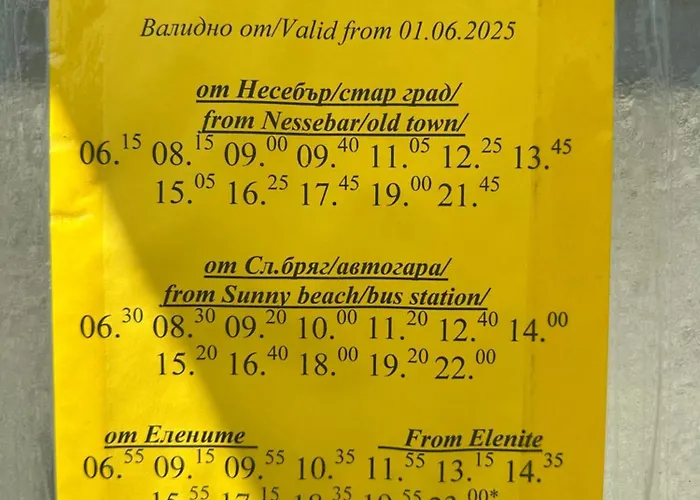 Валидно от/Valid from 01.06.2025
от Несебър/стар град/
from Nessebar/old town/
06.15 08.15 09.00 09.40 11.05 12.25 13.45
15.05 16.25 17.45 19.00 21.45
от Сл.бряг/автогара/
from Sunny beach/bus station/
06.30 08.30 09.20 10.00 11.20 12.40 14.00
15.20 16.40 18.00 19.20 22.00
от Елените From Elenite
06.55 09.15 09.55 10.35 11.55 13.15 14.35
15.55 17.15 18.35 19.55 23.00*